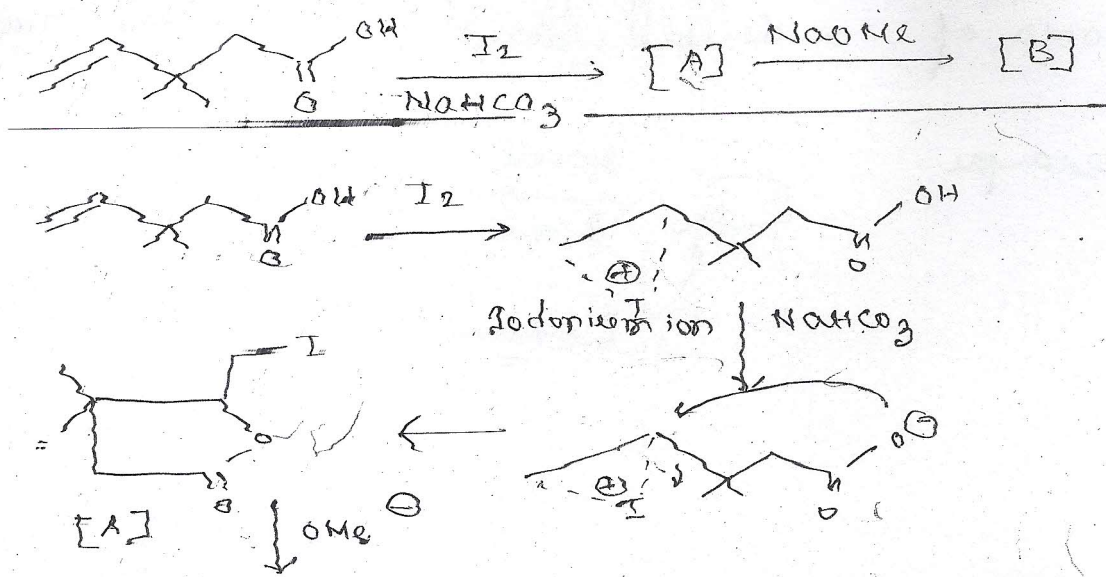 OH
I2
NaHCO3
O
[A]
NaOMe
[B]
OH
O
I2
OH
O
⊕
I
Iodonium ion
NaHCO3
I
O
O
=
[A]
⊖
OMe
O⊖
⊕
I
O